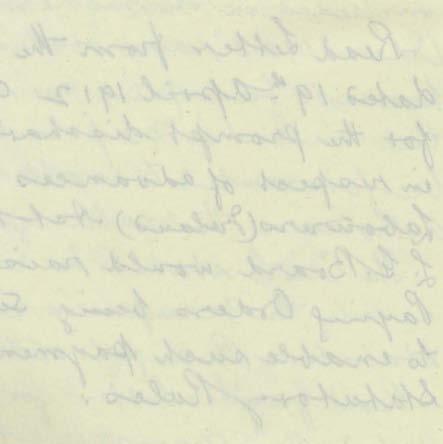 Read Letter from the
dated 19th April 1912
for the prompt
in respect of advances
Labourers (Ireland) Acts
L. G. Board would
Paying Orders being
to enable such
Statutory Rules.